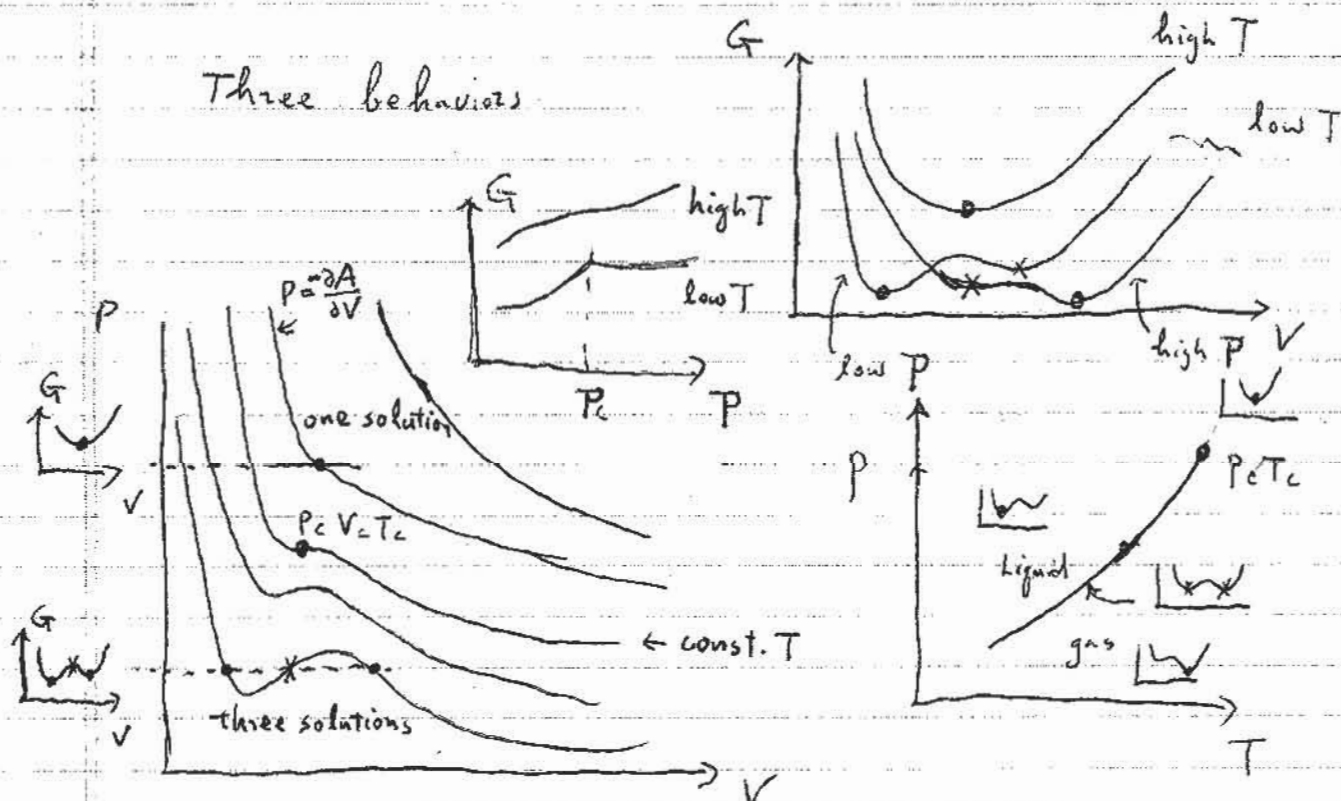 Three behaviors
G
high T
low T
low P
high P
V
G
high T
low T
Pc
P
P
P = -∂A/∂V
one solution
Pc Vc Tc
← const. T
three solutions
V
G
V
G
V
P
P
Pc Tc
Liquid
gas
T